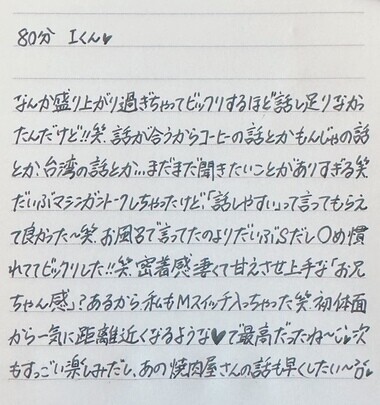 80分 Iくん♥
なんか盛り上がり過ぎちゃってビックリするほど話し足りなかっ
たんだけど!!笑 話が合うからコーヒーの話とかもんじゃの話
とか、台湾の話とか...まだまだ聞きたいことがありすぎる笑
だいぶマシンガントークしちゃったけど、「話しやすい」って言ってもらえ
て良かった〜笑 お風呂で言ってたのよりだいぶSだし〇め慣
れててビックリした!!笑 密着感凄くて甘えさせ上手な「お兄
ちゃん感」?あるから私もMスイッチ入っちゃった笑 初体面
から一気に距離近くなるような♥で最高だったね〜♥次
もすっごい楽しみだし、あの焼肉屋さんの話も早くしたい〜